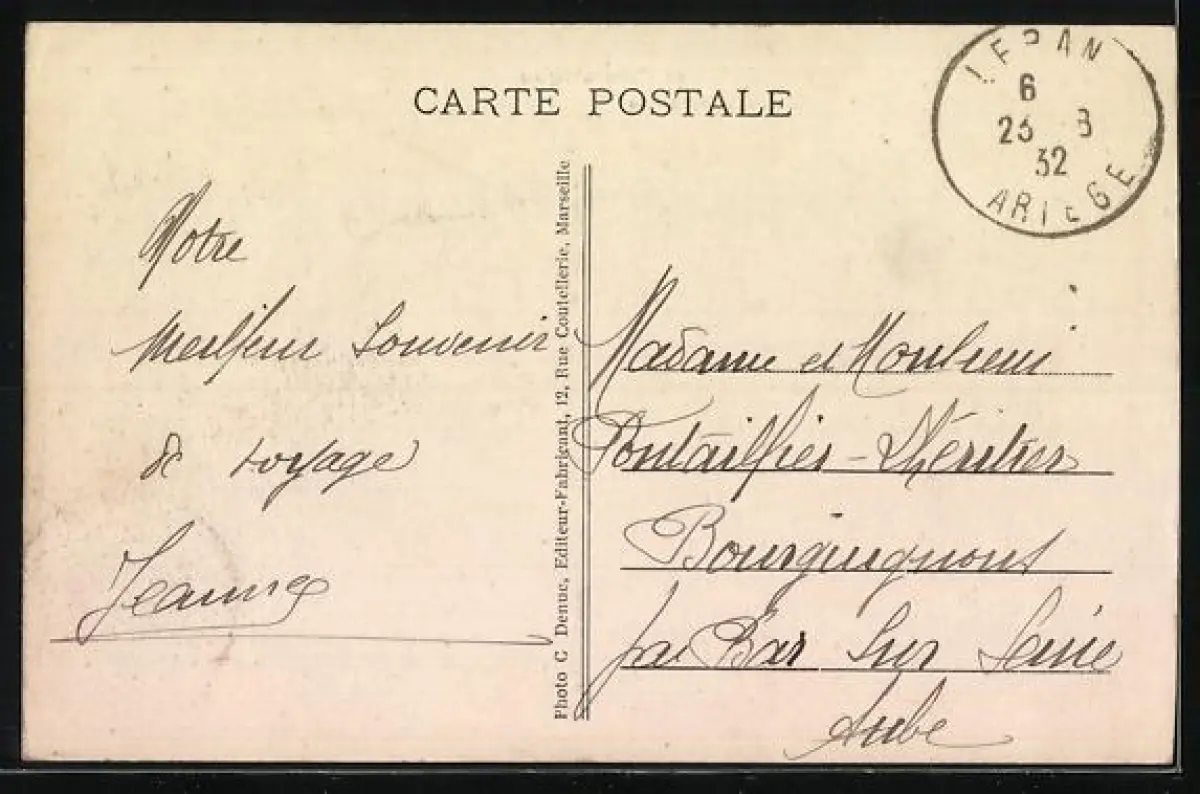 CARTE POSTALE
LERAN
6
23 8
32
ARIEGE
Notre
Meilleur Souvenir
de voyage
Jeanne
Photo C Denuc, Editeur-Fabricant, 12, Rue Coutellerie, Marseille
Madame et Monsieur
Pontaillier - Lhéritier
Bourguignons
par Bar Sur Seine
Aube